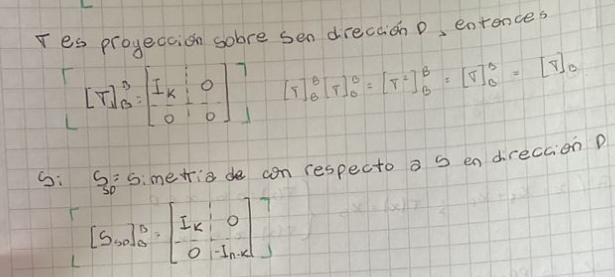 T es proyección sobre S en dirección D, entonces
[T]_B^B = [I_K 0; 0 0] [T]_B^B [T]_B^B = [T²]_B^B = [T]_B^B = [T]_B
Si S_SD = simetría de con respecto a S en dirección D
[S_SD]_B^B = [I_K 0; 0 -I_n-K]